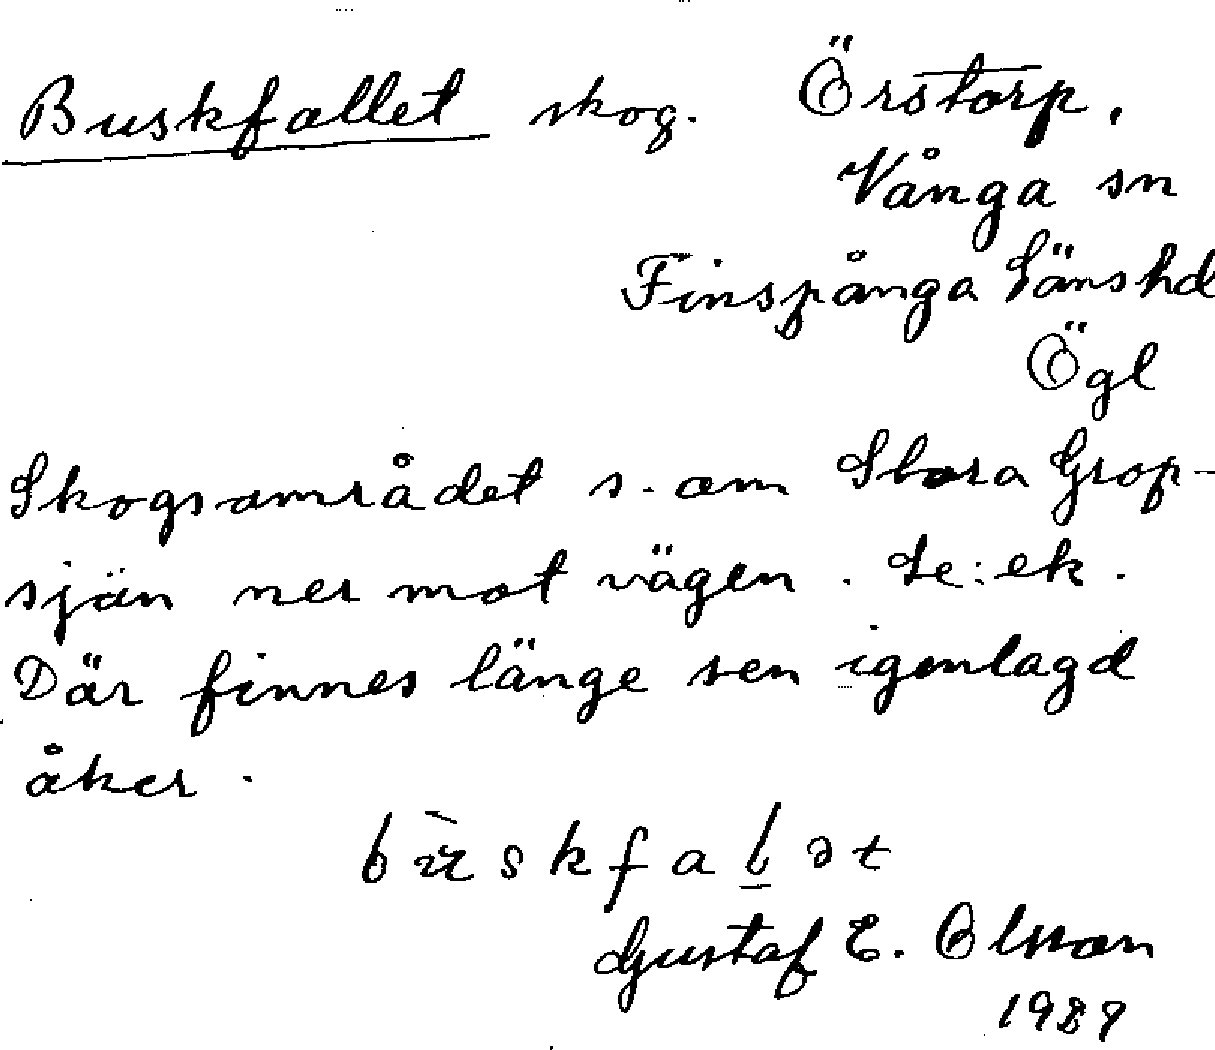 Buskfallet skog. Örstorp.
Vånga sn
Finspånga Länshd
Ögl
Skogsområdet s. om Stora Grop-
sjön ner mot vägen. Se: ek.
Där finnes länge sen igenlagd
åker.
Gustaf E. Olsson